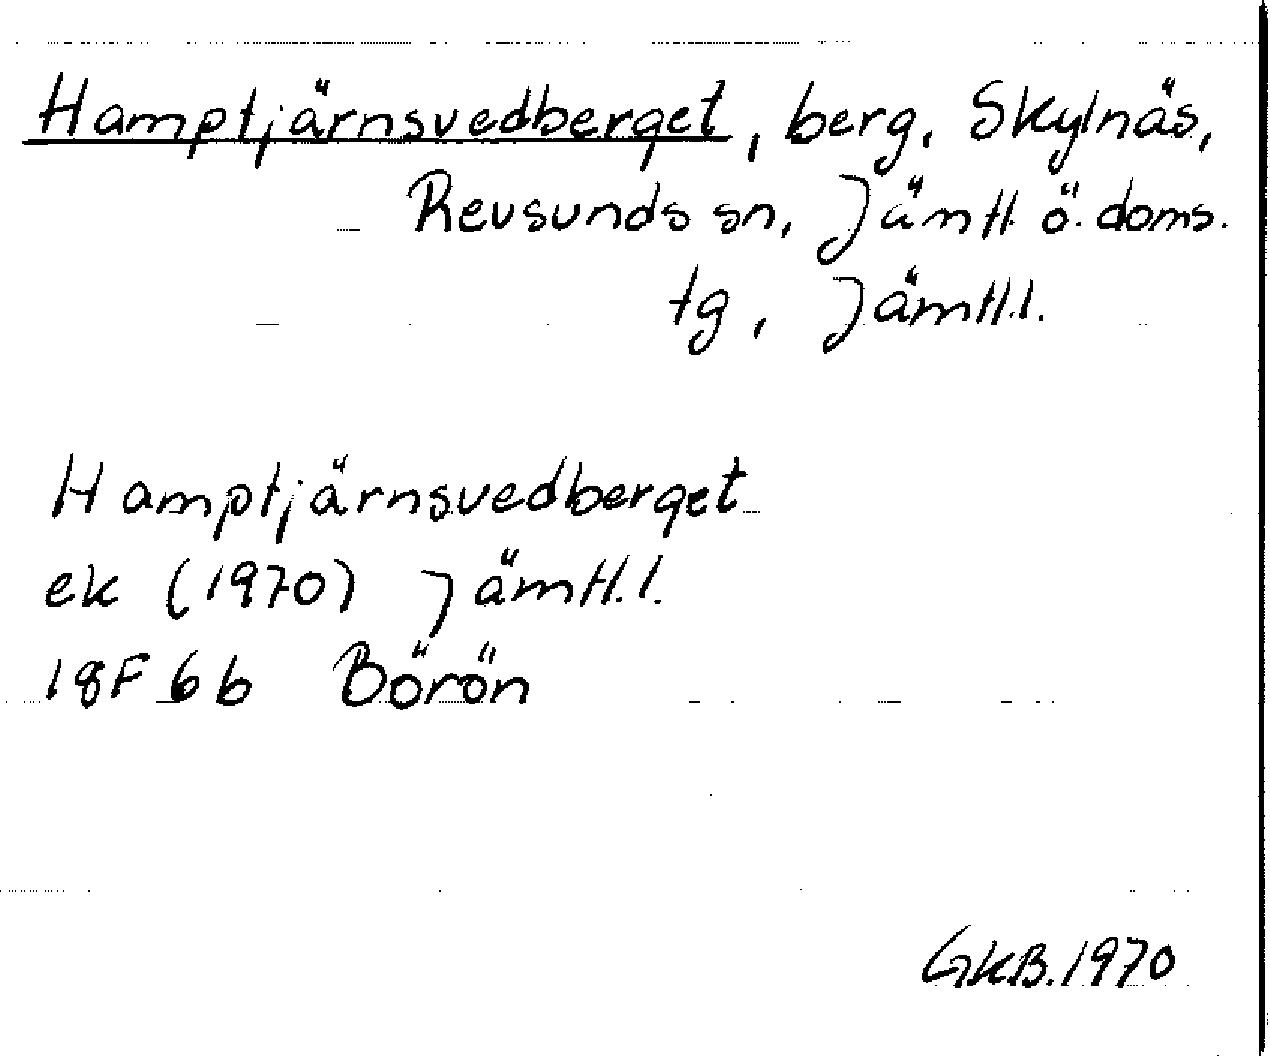 Hamptjärnsvedberget, berg, Skylnäs,
Revsunds sn, Jämtl. ö. doms.
tg, Jämtl.l.
Hamptjärnsvedberget
ek (1970) Jämtl.l.
18F 6b Börön
GKB.1970